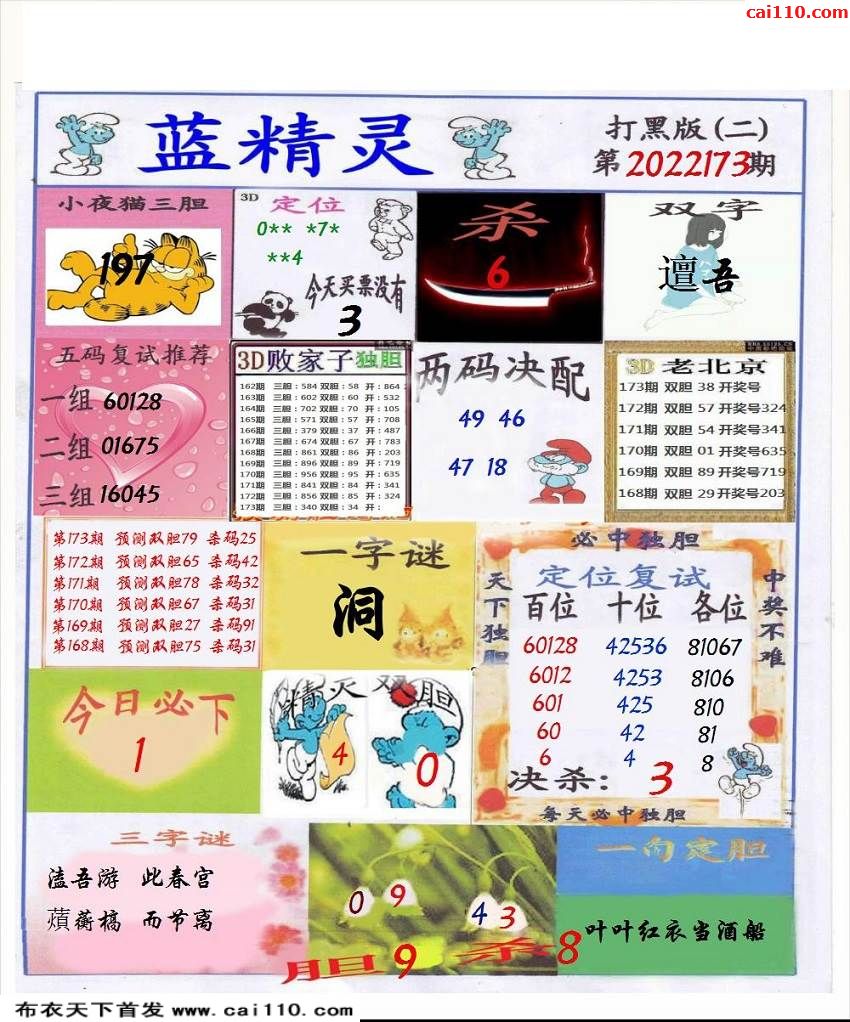 cai110.com
蓝精灵
打黑版(二)
第2022173期
小夜猫三胆
197
3D 定位
0** *7*
**4
今天买票没有
3
杀
6
双字
邅吾
五码复试推荐
一组 60128
二组 01675
三组 16045
3D败家子独胆
162期 三胆:584 双胆:58 开:864
163期 三胆:602 双胆:60 开:532
164期 三胆:702 双胆:70 开:105
165期 三胆:571 双胆:57 开:708
166期 三胆:379 双胆:37 开:487
167期 三胆:674 双胆:67 开:783
168期 三胆:861 双胆:86 开:203
169期 三胆:896 双胆:89 开:719
170期 三胆:956 双胆:95 开:635
171期 三胆:841 双胆:84 开:341
172期 三胆:856 双胆:85 开:324
173期 三胆:340 双胆:34 开:
两码决配
49 46
47 18
3D 老北京
173期 双胆 38 开奖号
172期 双胆 57 开奖号324
171期 双胆 54 开奖号341
170期 双胆 01 开奖号635
169期 双胆 89 开奖号719
168期 双胆 29 开奖号203
第173期 预测双胆79 杀码25
第172期 预测双胆65 杀码42
第171期 预测双胆78 杀码32
第170期 预测双胆67 杀码31
第169期 预测双胆27 杀码91
第168期 预测双胆75 杀码31
一字谜
洞
必中独胆
天下独胆
中奖不难
定位复试
百位 十位 各位
60128 42536 81067
6012 4253 8106
601 425 810
60 42 81
6 4 8
决杀: 3
每天必中独胆
今日必下
1
精灵双胆
4
0
三字谜
溘吾游 此春宫
薠蘅槁 而节离
0 9
4 3
胆9 杀8
一句定胆
叶叶红衣当酒船
布衣天下首发 www.cai110.com